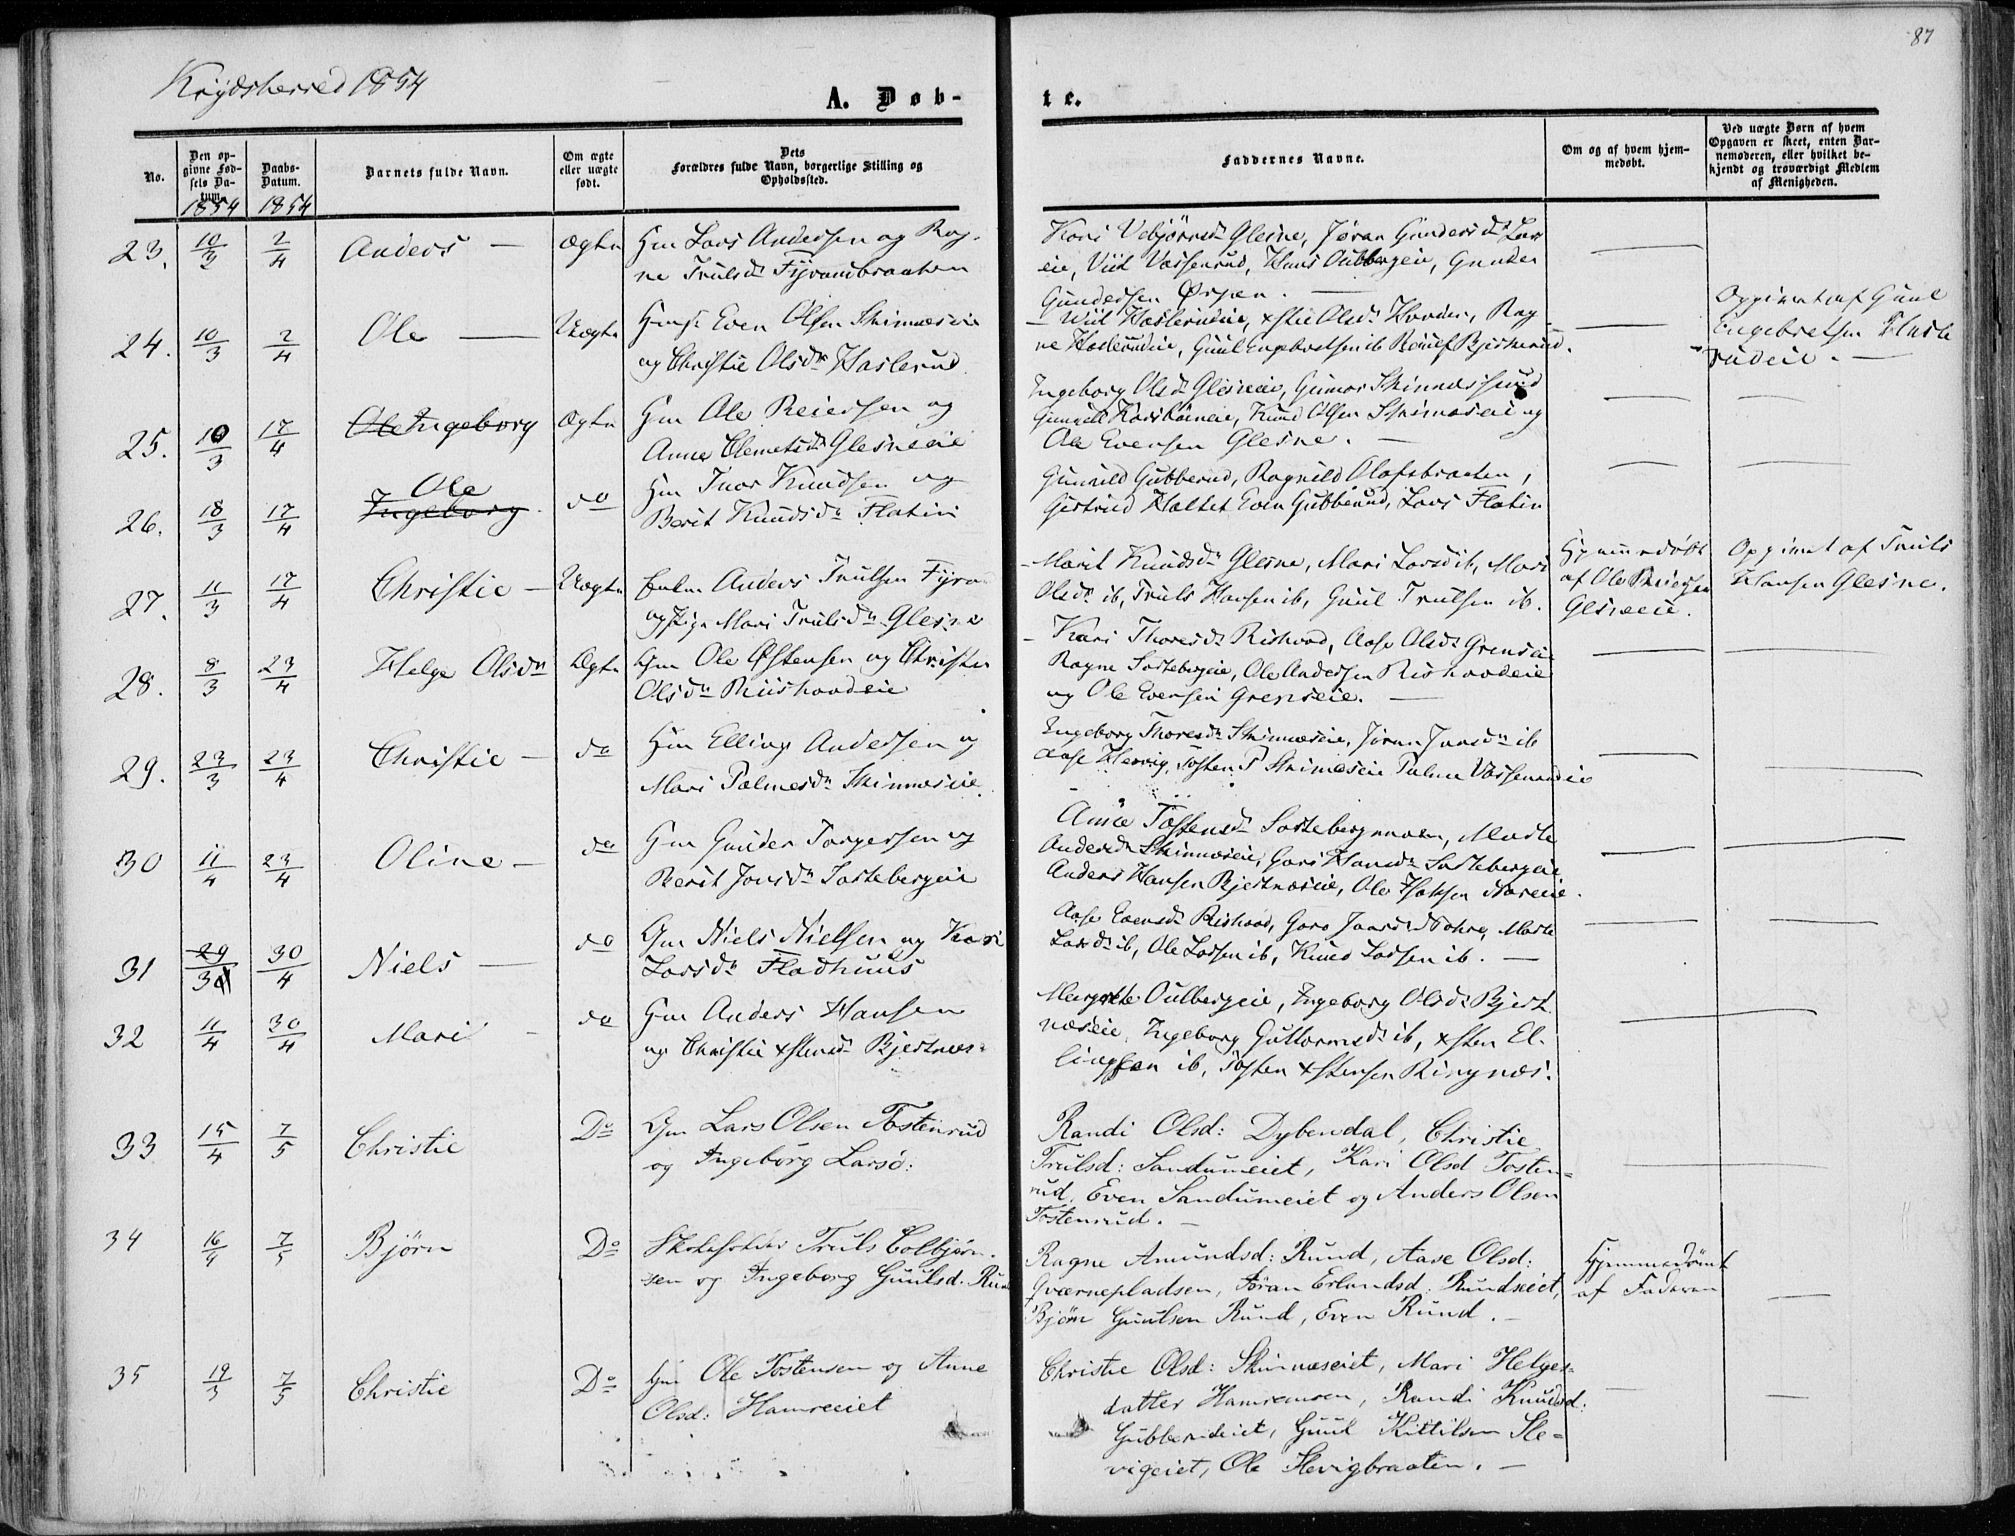 87
Krydsherred 1854
A. Døb-
te.
No.
Den op-
givne Fød-
sels Da-
tum.
1854
Daabs-
Datum.
1854
Barnets fulde Navn.
Om ægte
eller uægte
født.
Dets
Forældres fulde Navn, borgerlige Stilling og
Opholdssted.
Faddernes Navne.
Om og af hvem hjem-
medøbt.
Ved uægte Børn af hvem
Opgaven er skeet, enten Bar-
nemoderen, eller hvilket be-
kjendt og troværdigt Medlem
af Menigheden.
23. 10/2 2/4 Anders — Ægte
Gm Lars Andersen og Rag-
ne Trulsdr Fyrandbraaten
Kari Vebjørnsdr Glesne, Jøran Gundersdr Lar
eie, Viil Vassenrud, Hans Oulbergeie, Gunder
Gundersen Ørpen. —
24. 10/3 2/4 Ole — Uægte
Even Olsen Skinnæseie
og Christie Olsdr Haslerud
Wiil Haslerudeie, xstie Olsdr Hovde, Rag
ne Haslerudeie, Guul Engebretsen ib Roulf Bjertnerud.
Opgivet af Guul
Engebretsen Hasle
rudeie. —
25. 10/3 17/4 Ole Ingeborg Ægte
Gm Ole Reiersen og
Anne Clemetsdr Glesneeie
Ingeborg Olsdr Glesneie, Gunnor Skinnessund
Gunnild Korsbøeneie, Knud Olsen Skinnæseie og
Ole Evensen Glesne. —
26. 18/3 17/4 Ole
Ingeborg do
Gm Ivar Knudsen og
Berit Knudsdr Flatin
Gunnild Gubberud, Ragnild Olafsbraaten,
Gjertrud Haltet Even Gubberud, Lars Flatin
27. 11/3 17/4 Christie — Uægte
Anders Trulsen Fyrand
og Pige Mari Trulsdr Glesne
Marit Knudsdr Glesne, Mari Larsd ib, Mari
Olsdr ib, Truls Hansen ib, Guul Trulsen ib.
Hjemmedøbt
af Ole Reiersen
Glesneeie.
Opgivet af Truls
Hansen Glesne.
28. 8/3 23/4 Helge Olsdr Ægte
Gm Ole Østensen og Christie
Olsdr Riishovdeie
Kari Thoresdr Rishovd, Aase Olsdr Grenseie
Ragne Sortebergeie, Ole Andersen Rishovdeie
og Ole Evensen Grenseie. —
29. 23/3 23/4 Christie — do
Gm Elling Andersen og
Mari Palmesdr Skinnæseie.
Engeborg Thoresdr Skinnæseie, Jøran Jonsdr ib
Aase Hervig, Tosten P Skinnæseie Palme Vassenrudeie
30 11/4 23/4 Oline — do
Gm Gunder Torgersen og
Berit Jonsdr Sortebergeie
Anne Tostensdr Sortebergmoen, Marte
Andersdr Skinnæseie, Goro Hansdr Sortebergeie
Anders Hansen Bjertnæseie, Ole Isaksen Noreeie.
31 29/3 30/4 Niels — do
Gm Niels Nielsen og Kari
Larsdr Fladhuus
Aase Evensdr Rishovd, Goro Jonsd Nohre, Marte
Larsdr ib, Ole Larsen ib, Knud Larsen ib. —
32 11/4 30/4 Mari do
Gm Anders Hansen
og Christie xstensdr Bjertnæs
Margrethe Oulbergeie, Ingeborg Olsdr Bjert
næseie, Ingeborg Guttormsdr ib, xsten El-
lingsen ib, Tosten xstensen Ringnæs.
33 15/4 7/5 Christie Do
Gm Lars Olsen Tostenrud
og Ingeborg Larsd:
Randi Olsd: Dybendal, Christie
Trulsd: Sandumeiet, Kari Olsd Tosten=
rud, Even Sandumeiet og Anders Olsen
Tostenrud. —
34 16/4 7/5 Bjørn Do
Skoleholder Truls Colbjørn-
sen og Ingeborg Guulsd. Rund
Ragne Amundsd: Rund, Aase Olsd:
Qværnepladsen, Jøran Erlandsd. Rundseiet,
Bjørn Guulsen Rund, Even Rund. —
Hjemmedøbt
af Faderen
35 19/3 7/5 Christie Do
Gm Ole Tostensen og Anne
Olsd: Hamreeiet
Christie Olsd: Skinnæseiet, Mari Helges-
datter Hamremoen, Randi Knudsd:
Gubberudeiet, Guul Kittilsen Sle=
vigeiet, Ole Slevigbraaten. —